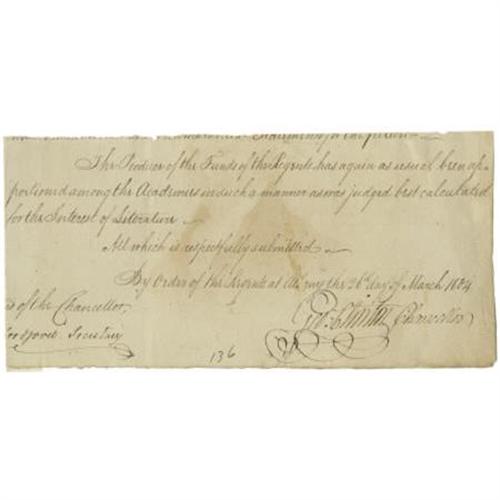 The Produce of the Funds of the Regents has again as usual been ap-
portioned among the Academies in such a manner as was judged best calculated
for the Interest of Literature
All which is respectfully submitted
By Order of the Regents at Albany the 26th day of March 1804
of the Chancellor,
Geo: Clinton Chancellor
Secretary
136